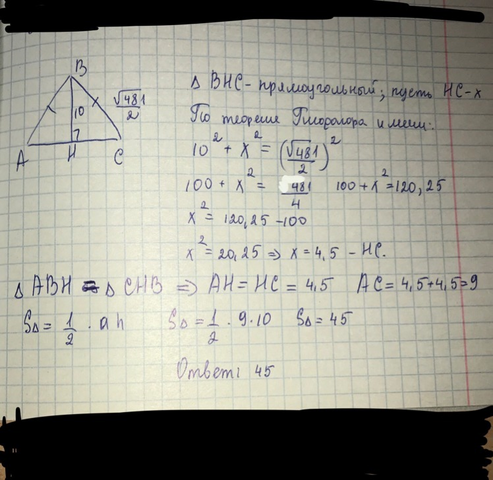 B
√481/2
10
A H C
Δ BHC - прямоугольный; пусть HC - x
По теореме Пифагора имеем:
10² + x² = (√481/2)²
100 + x² = 481/4 100 + x² = 120,25
x² = 120,25 - 100
x² = 20,25 ⇒ x = 4,5 - HC.
Δ ABH = Δ CHB ⇒ AH = HC = 4,5 AC = 4,5+4,5=9
SΔ = 1/2 · ah SΔ = 1/2 · 9 · 10 SΔ = 45
Ответ: 45